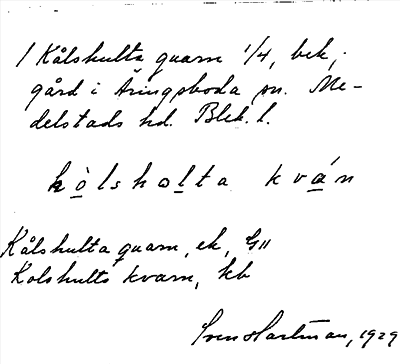 / Kålshulta quarn 1/4, bek.
gård i Åringsboda sn. Me-
delstads hd. Blek. l.
kòlshọlta kván
Kålshulta quarn, ek,
Kolshults kvarn, kb
Sven Hartman, 1929